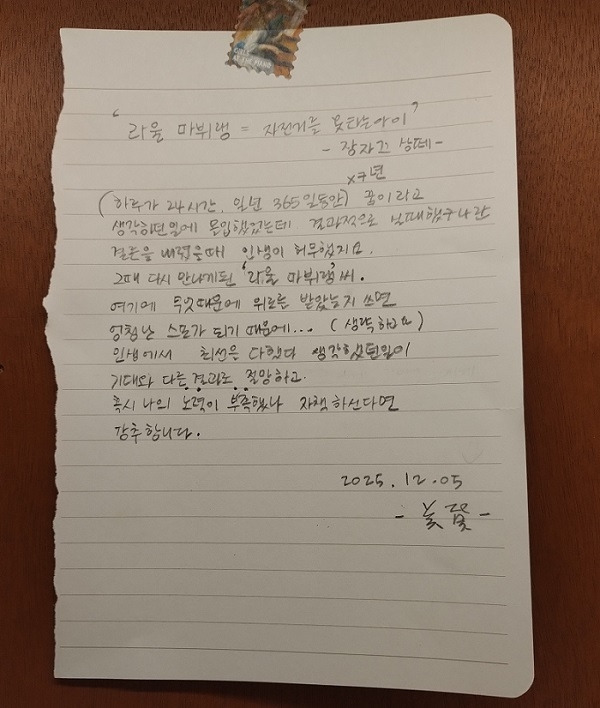 '라울 따뷔랭 = 자전거를 못타는아이'
- 장자끄 상뻬 -
x7년
(하루가 24시간, 일년 365일동안) 꿈이라고
생각하던일에 몰입했었는데 결과적으로 실패했구나란
결론을 내렸을때 인생이 허무했지요.
그때 다시 만나게된 '라울 따뷔랭'씨.
여기에 무엇때문에 위로를 받았는지 쓰면
엄청난 스포가 되기 때문에... (생략하고요)
인생에서 최선을 다했다 생각했던일이
기대와 다른 결과로 절망하고.
혹시 나의 노력이 부족했나 자책하신다면
강추합니다.
2025. 12. 05